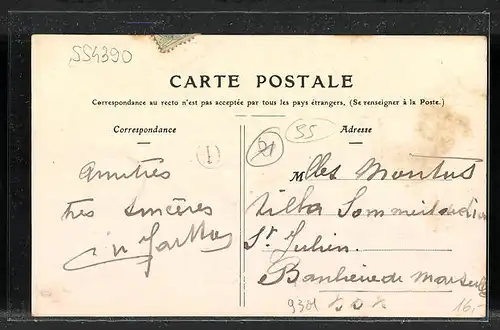 554390
CARTE POSTALE
Correspondance au recto n'est pas acceptée par tous les pays étrangers. (Se renseigner à la Poste.)
Correspondance
Adresse
1
21
55
Amitiés
très sincères
Mlles Montus
Villa
St Julien
Banlieue de Marseille
16.-